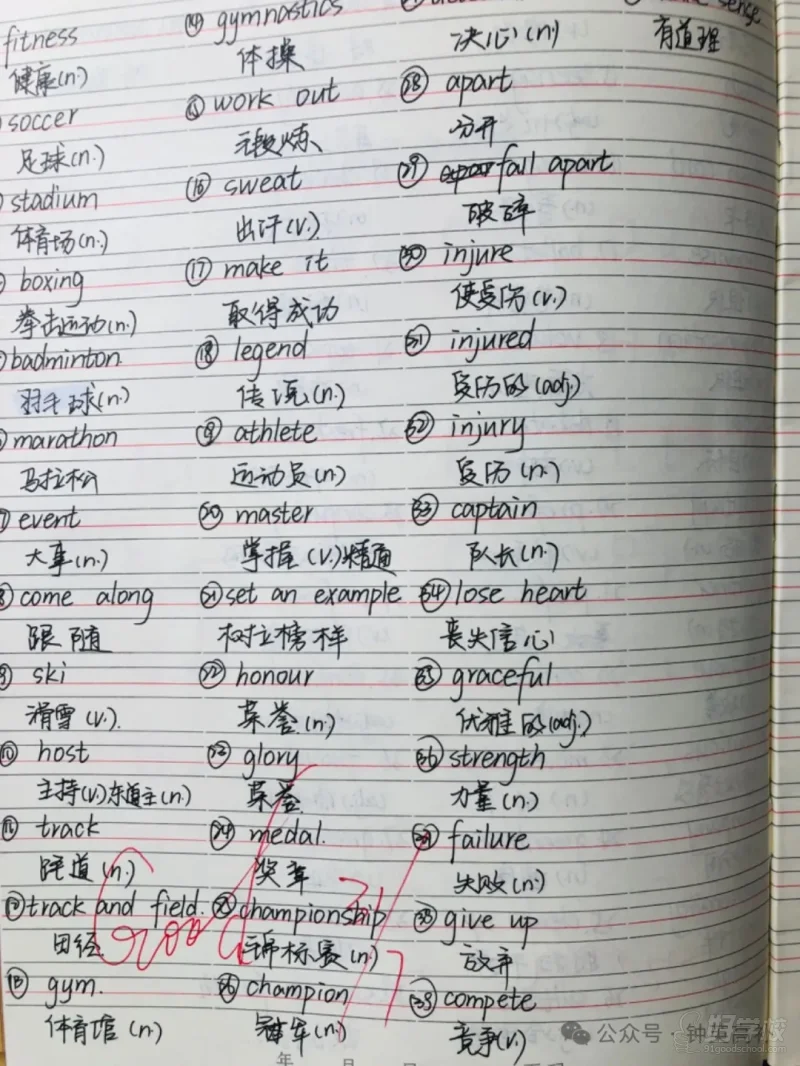 fitness
健康(n.)
soccer
足球(n.)
stadium
体育场(n.)
boxing
拳击运动(n.)
badminton
羽毛球(n.)
marathon
马拉松
event
大事(n.)
come along
跟随
ski
滑雪(v.)
⑩ host
主持(v.)东道主(n.)
⑪ track
跑道(n.)
⑫ track and field.
田径
⑬ gym.
体育馆(n.)
⑭ gymnastics
体操
⑮ work out
锻炼
⑯ sweat
出汗(v.)
⑰ make it
取得成功
⑱ legend
传说(n.)
⑲ athlete
运动员(n.)
⑳ master
掌握(v.)精通
㉑ set an example
树立榜样
㉒ honour
荣誉(n.)
㉓ glory
荣誉
㉔ medal.
奖章
㉕ championship
锦标赛(n.)
㉖ champion
冠军(n.)
决心(n.)
㉘ apart
分开
㉙ fall apart
破碎
㉚ injure
使受伤(v.)
㉛ injured
受伤的(adj.)
㉜ injury
受伤(n.)
㉝ captain
队长(n.)
㉞ lose heart
丧失信心
㉟ graceful
优雅的(adj.)
㊱ strength
力量(n.)
㊲ failure
失败(n)
㊳ give up
放弃
㊴ compete
竞争(v.)
sense
有道理
Good
年 月
公众号·钟英高
好学校
91goodschool.com